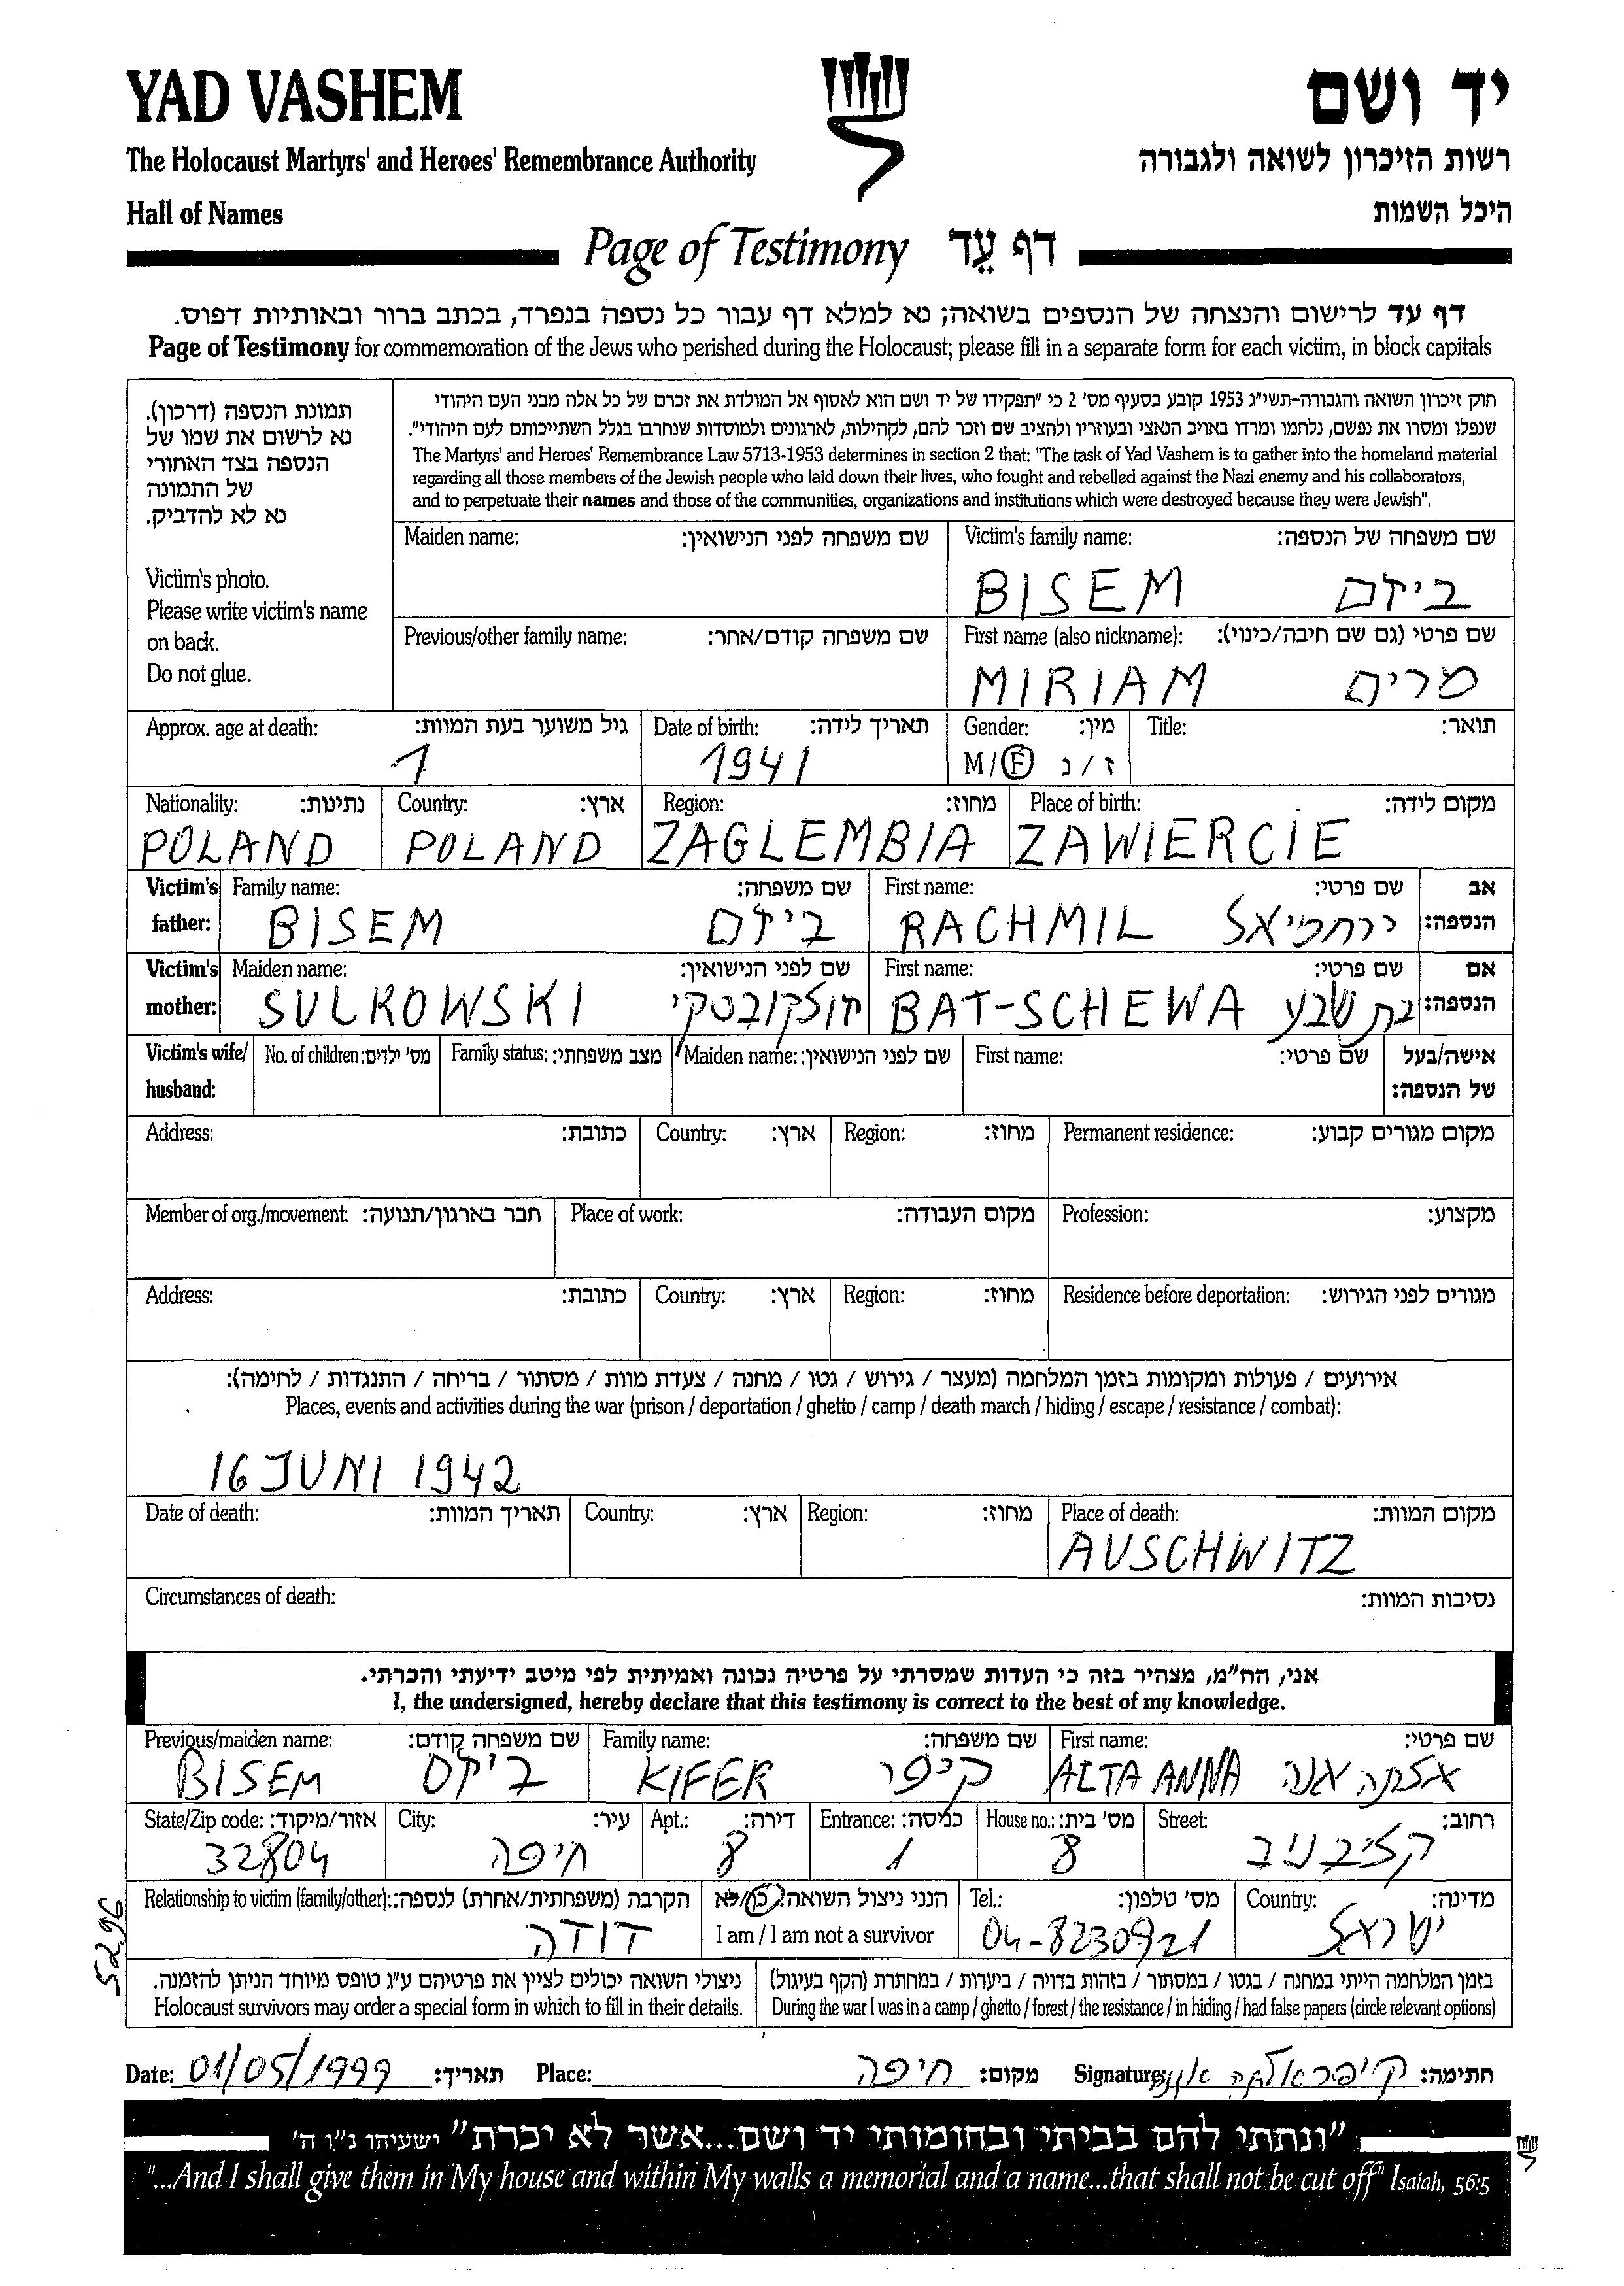 YAD VASHEM
יד ושם
The Holocaust Martyrs' and Heroes' Remembrance Authority
רשות הזיכרון לשואה ולגבורה
Hall of Names
היכל השמות
Page of Testimony דף עֵד
דף עד לרישום והנצחה של הנספים בשואה; נא למלא דף עבור כל נספה בנפרד, בכתב ברור ובאותיות דפוס.
Page of Testimony for commemoration of the Jews who perished during the Holocaust; please fill in a separate form for each victim, in block capitals
תמונת הנספה (דרכון).
נא לרשום את שמו של
הנספה בצד האחורי
של התמונה
נא לא להדביק.
Victim's photo.
Please write victim's name
on back.
Do not glue.
חוק זיכרון השואה והגבורה-תשי"ג 1953 קובע בסעיף מס' 2 כי "תפקידו של יד ושם הוא לאסוף אל המולדת את זכרם של כל אלה מבני העם היהודי
שנפלו ומסרו את נפשם, נלחמו ומרדו באויב הנאצי ובעוזריו ולהציב שם וזכר להם, לקהילות, לארגונים ולמוסדות שנחרבו בגלל השתייכותם לעם היהודי".
The Martyrs' and Heroes' Remembrance Law 5713-1953 determines in section 2 that: "The task of Yad Vashem is to gather into the homeland material
regarding all those members of the Jewish people who laid down their lives, who fought and rebelled against the Nazi enemy and his collaborators,
and to perpetuate their names and those of the communities, organizations and institutions which were destroyed because they were Jewish".
Maiden name: שם משפחה לפני הנישואין:
Victim's family name: שם משפחה של הנספה:
BISEM ביזם
Previous/other family name: שם משפחה קודם/אחר:
First name (also nickname): שם פרטי (גם שם חיבה/כינוי):
MIRIAM מרים
Approx. age at death: גיל משוער בעת המוות:
1
Date of birth: תאריך לידה:
1941
Gender: מין:
M/F ז/נ
Title: תואר:
Nationality: נתינות:
POLAND
Country: ארץ:
POLAND
Region: מחוז:
ZAGLEMBIA
Place of birth: מקום לידה:
ZAWIERCIE
Victim's father: Family name: שם משפחה:
BISEM ביזם
First name: שם פרטי: אב הנספה:
RACHMIL ירחמיאל
Victim's mother: Maiden name: שם לפני הנישואין:
SULKOWSKI
First name: שם פרטי: אם הנספה:
BAT-SCHEWA בת שבע
Victim's wife/husband: No. of children: מס' ילדים: Family status: מצב משפחתי: Maiden name: שם לפני הנישואין: First name: שם פרטי: אישה/בעל של הנספה:
Address: כתובת: Country: ארץ: Region: מחוז: Permanent residence: מקום מגורים קבוע:
Member of org./movement: חבר בארגון/תנועה: Place of work: מקום העבודה: Profession: מקצוע:
Address: כתובת: Country: ארץ: Region: מחוז: Residence before deportation: מגורים לפני הגירוש:
אירועים / פעולות ומקומות בזמן המלחמה (מעצר / גירוש / גטו / מחנה / צעדת מוות / מסתור / בריחה / התנגדות / לחימה):
Places, events and activities during the war (prison / deportation / ghetto / camp / death march / hiding / escape / resistance / combat):
16 JUNI 1942
Date of death: תאריך המוות: Country: ארץ: Region: מחוז: Place of death: מקום המוות:
AUSCHWITZ
Circumstances of death: נסיבות המוות:
אני, הח"מ, מצהיר בזה כי העדות שמסרתי על פרטיה נכונה ואמיתית לפי מיטב ידיעתי והכרתי.
I, the undersigned, hereby declare that this testimony is correct to the best of my knowledge.
Previous/maiden name: שם משפחה קודם:
BISEM ביזם
Family name: שם משפחה:
KIFER קיפר
First name: שם פרטי:
ALTA ANNA אלטה אנה
State/Zip code: אזור/מיקוד:
32804
City: עיר:
חיפה
Apt.: דירה:
8
Entrance: כניסה:
1
House no.: מס' בית:
8
Street: רחוב:
Relationship to victim (family/other): הקרבה (משפחתית/אחרת) לנספה:
דודה
הנני ניצול השואה: כן/לא
I am / I am not a survivor
Tel.: מס' טלפון:
04-8230921
Country: מדינה:
ישראל
5296
ניצולי השואה יכולים לציין את פרטיהם ע"ג טופס מיוחד הניתן להזמנה.
Holocaust survivors may order a special form in which to fill in their details.
בזמן המלחמה הייתי במחנה / בגטו / במסתור / בזהות בדויה / ביערות / במחתרת (הקף בעיגול)
During the war I was in a camp / ghetto / forest / the resistance / in hiding / had false papers (circle relevant options)
Date: 01/05/1999 תאריך: Place: חיפה מקום: Signature: קיפר אלטה אנה חתימה:
"ונתתי להם בביתי ובחומותי יד ושם...אשר לא יכרת" ישעיהו נ"ו ה'
"...And I shall give them in My house and within My walls a memorial and a name...that shall not be cut off" Isaiah, 56:5